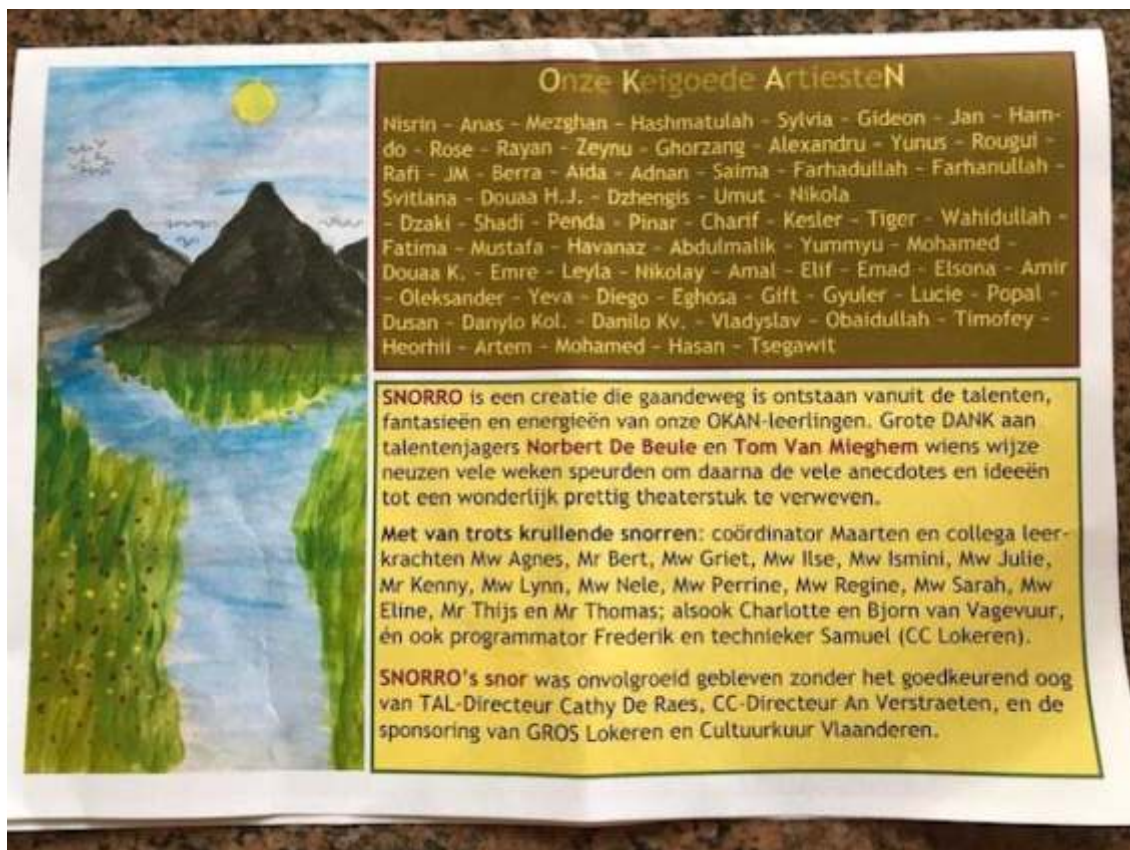 Onze Keigoede ArtiesteN
Nisrin - Anas - Mezghan - Hashmatulah - Sylvia - Gideon - Jan - Ham-
do - Rose - Rayan - Zeynu - Ghorzang - Alexandru - Yunus - Rougui -
Rafi - JM - Berra - Aida - Adnan - Saima - Farhadullah - Farhanullah -
Svitlana - Douaa H.J. - Dzhengis - Umut - Nikola
- Dzaki - Shadi - Penda - Pinar - Charif - Kesler - Tiger - Wahidullah -
Fatima - Mustafa - Havanaz - Abdulmalik - Yummyu - Mohamed -
Douaa K. - Emre - Leyla - Nikolay - Amal - Elif - Emad - Elsona - Amir
- Oleksander - Yeva - Diego - Eghosa - Gift - Gyuler - Lucie - Popal -
Dusan - Danylo Kol. - Danilo Kv. - Vladyslav - Obaidullah - Timofey -
Heorhii - Artem - Mohamed - Hasan - Tsegawit
SNORRO is een creatie die gaandeweg is ontstaan vanuit de talenten,
fantasieën en energieën van onze OKAN-leerlingen. Grote DANK aan
talentenjagers Norbert De Beule en Tom Van Mieghem wiens wijze
neuzen vele weken speurden om daarna de vele anecdotes en ideeën
tot een wonderlijk prettig theaterstuk te verweven.
Met van trots krullende snorren: coördinator Maarten en collega leer-
krachten Mw Agnes, Mr Bert, Mw Griet, Mw Ilse, Mw Ismini, Mw Julie,
Mr Kenny, Mw Lynn, Mw Nele, Mw Perrine, Mw Regine, Mw Sarah, Mw
Eline, Mr Thijs en Mr Thomas; alsook Charlotte en Bjorn van Vagevuur,
én ook programmator Frederik en technieker Samuel (CC Lokeren).
SNORRO's snor was onvolgroeid gebleven zonder het goedkeurend oog
van TAL-Directeur Cathy De Raes, CC-Directeur An Verstraeten, en de
sponsoring van GROS Lokeren en Cultuurkuur Vlaanderen.